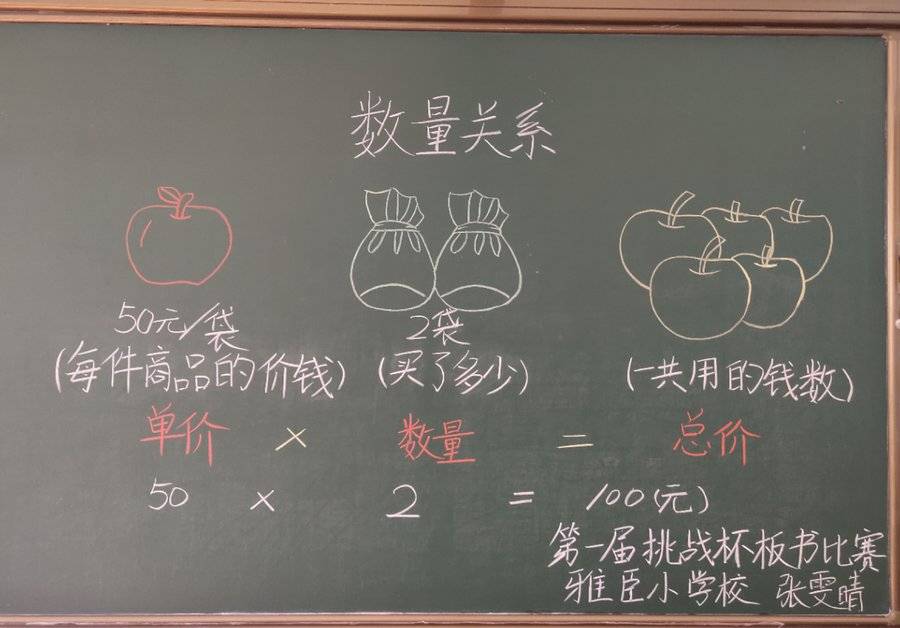 数量关系
50元/袋 2袋
(每件商品的价钱) (买了多少) (一共用的钱数)
单价 × 数量 = 总价
50 × 2 = 100(元)
第一届挑战杯板书比赛
雅臣小学校 张雯晴